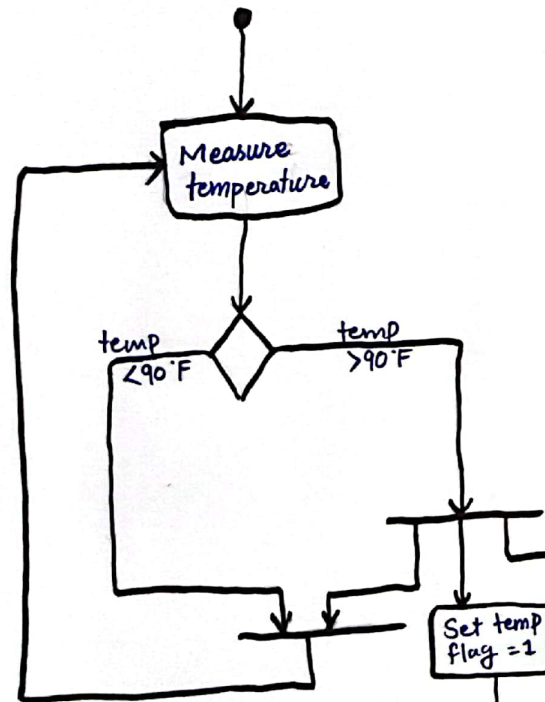 Measure
temperature
temp
<90°F
temp
>90°F
Set temp
flag = 1